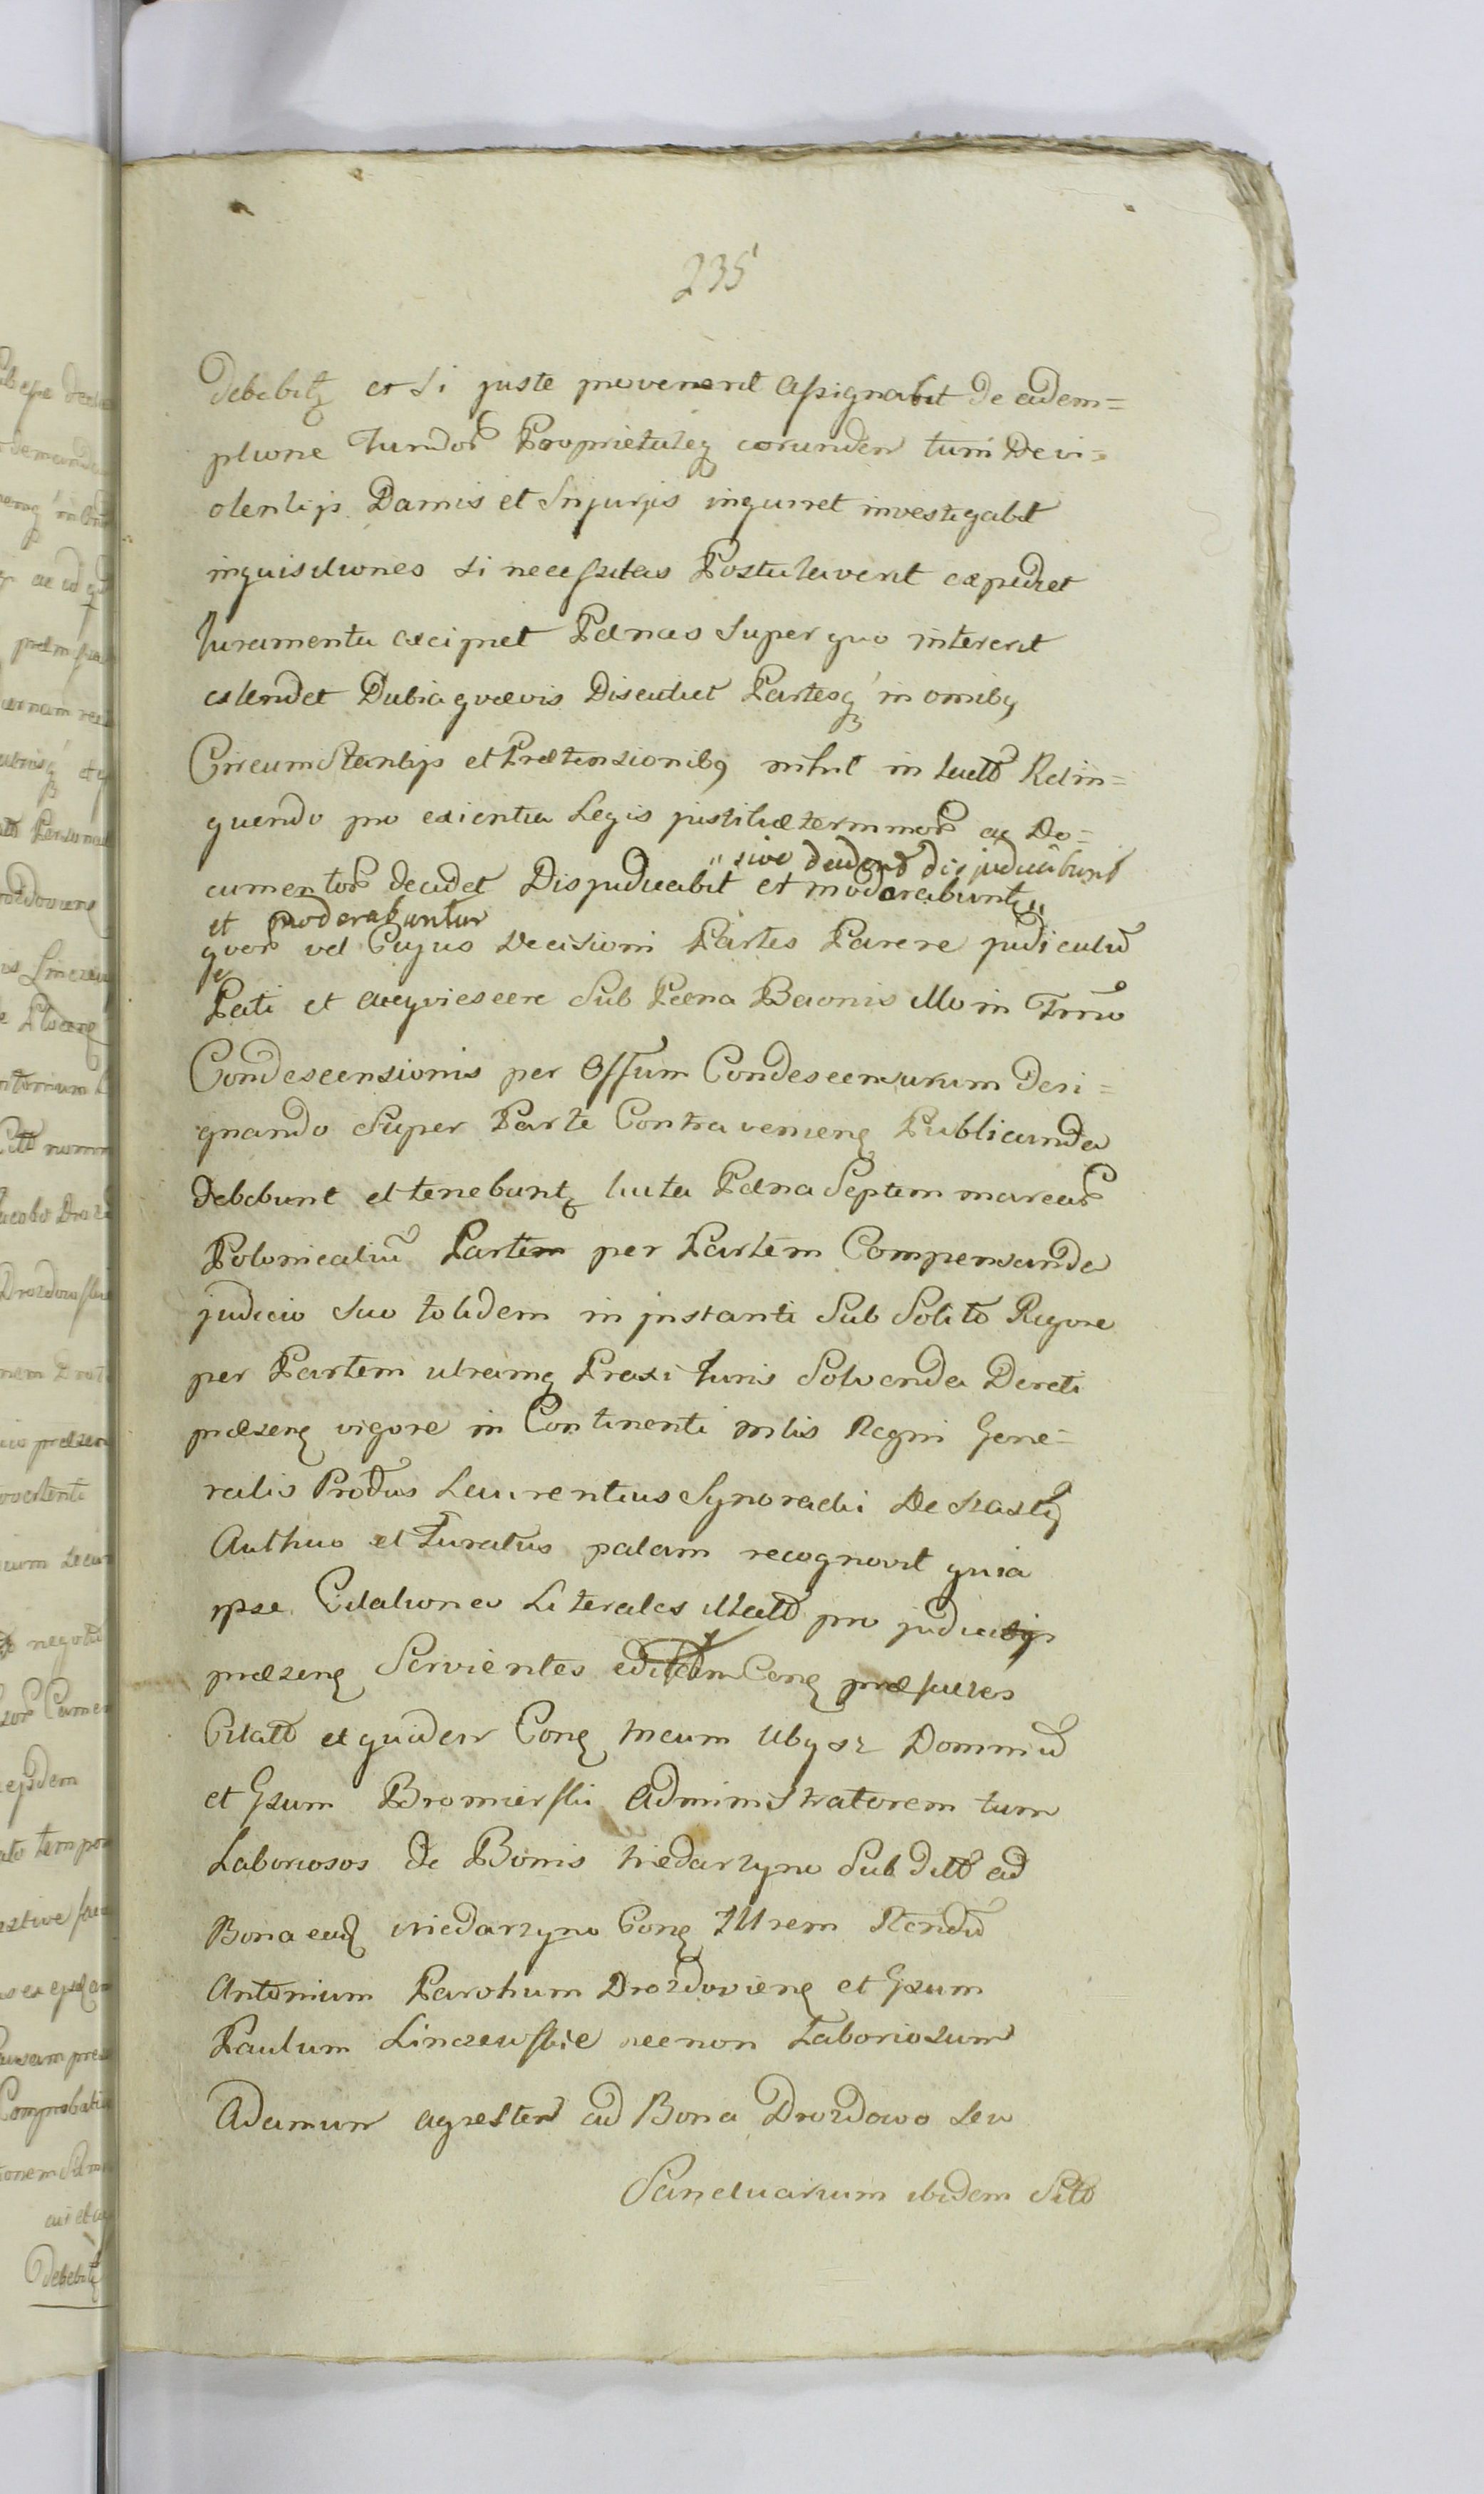 235
Debebitq et Si juste provenerit Assignabit de adem=
ptione Fundor Proprietateq eorundem tum De vi=
olentijs Damis et Injurijs inquiret investigabit
inquisitiones Si necessitas Postulaverit expediet
Juramenta excipiet Pænas Super quo intererit
extendet Dubia qvævis Discutiet Partesq in omnibq
Circumstantijs et Prætensionibq nihil in Relin=
quendo pro exientia Legis justitiæ terminor ac Do=
" sive decident disjudicabunt
cumentor decidet Disjudicabit et moderabuntq "
et moderabuntur
quor vel Cujus Decisioni Partes Parere judicatu
se
Pati et acqviescere Sub Pæna Baonis illo in Trno
Condescensionis per Offum Condescensurum desi=
gnando Super Parte Contravenienq Publicanda
Debebunt et tenebuntq luita Pæna Septem marcar
Polonicaliu Partem per Partem Compensanda
judicio Suo totidem in instanti Sub Solito Rigore
per Partem utramq Praxi Juris Solvenda Dereti
præsenq vigore in Continenti mlis Regni Gene=
ralis Produs Laurentius Synoracki De
Authus et Juratus palam recognovit quia
ipse Citationes Literales pro judicijs
præsenq Servientes Conq præfutes
Citatt et quidem Conq Mcum Ubysz Dominiu
et Gsum Bromierski Administratorem tum
Laboriosos de Bonis Niedarzyno Subditt ad
Bona eadq Niedarzyno Conq Illrem Rendu
Antonium Parohum Drozdovienq et Gsum
Paulum Linczewskie necnon Laboriosum
Adamum agrestem ad Bona Drozdowo seu
Sanctuarium ibidem Sitt